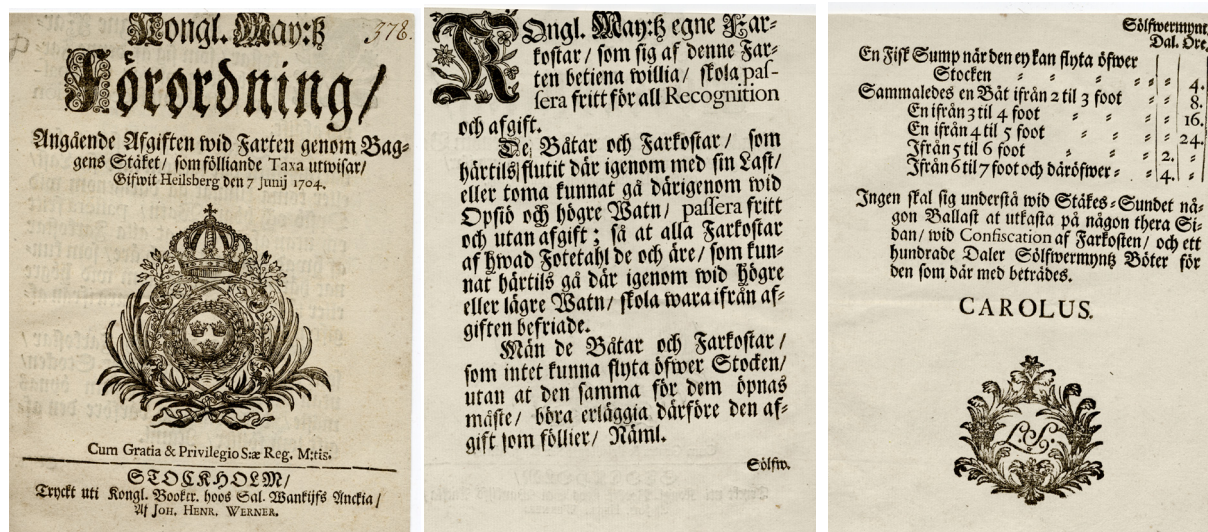 Kongl. May:tz 378.
Förordning/
Angående Afgiften wid Farten genom Bag-
gens Stäket/ som fölliande Taxa utwisar/
Gifwit Heilsberg den 7 Junij 1704.
Cum Gratia & Privilegio S:æ Reg. M:tis.
STOCKHOLM/
Tryckt uti Kongl. Booktr. hoos Sal. Wankijfs Änckia/
Af JOH. HENR. WERNER.
KOngl. May:tz egne Far-
kostar/ som sig af denne Far-
ten betiena willia/ skola pas-
sera fritt för all Recognition
och afgift.
De Båtar och Farkostar/ som
härtils flutit där igenom med sin Last/
eller toma kunnat gå därigenom wid
Opsiö och högre Watn/ passera fritt
och utan afgift; så at alla Farkostar
af hwad Fotetahl de och äre/ som kun-
nat härtils gå där igenom wid högre
eller lägre Watn/ skola wara ifrån af-
giften befriade.
Män de Båtar och Farkostar/
som intet kunna flyta öfwer Stocken/
utan at den samma för dem öpnas
måste/ böra erläggia därföre den af-
gift som föllier/ Näml.
Sölfw.
Sölfwermynt.
Dal. Öre.
En Fisk Sump när den ey kan flyta öfwer
Stocken = = = = = 4.
Sammaledes en Båt ifrån 2 til 3 foot = = 8.
En ifrån 3 til 4 foot = = = = 16.
En ifrån 4 til 5 foot = = = = 24.
Ifrån 5 til 6 foot = = = 2. =
Ifrån 6 til 7 foot och däröfwer = = 4. =
Ingen skal sig understå wid Stäkes-Sundet nå-
gon Ballast at utkasta på någon thera Si-
dan/ wid Confiscation af Farkosten/ och ett
hundrade Daler Sölfwermyntz Böter för
den som där med beträdes.
CAROLUS.
L.S.